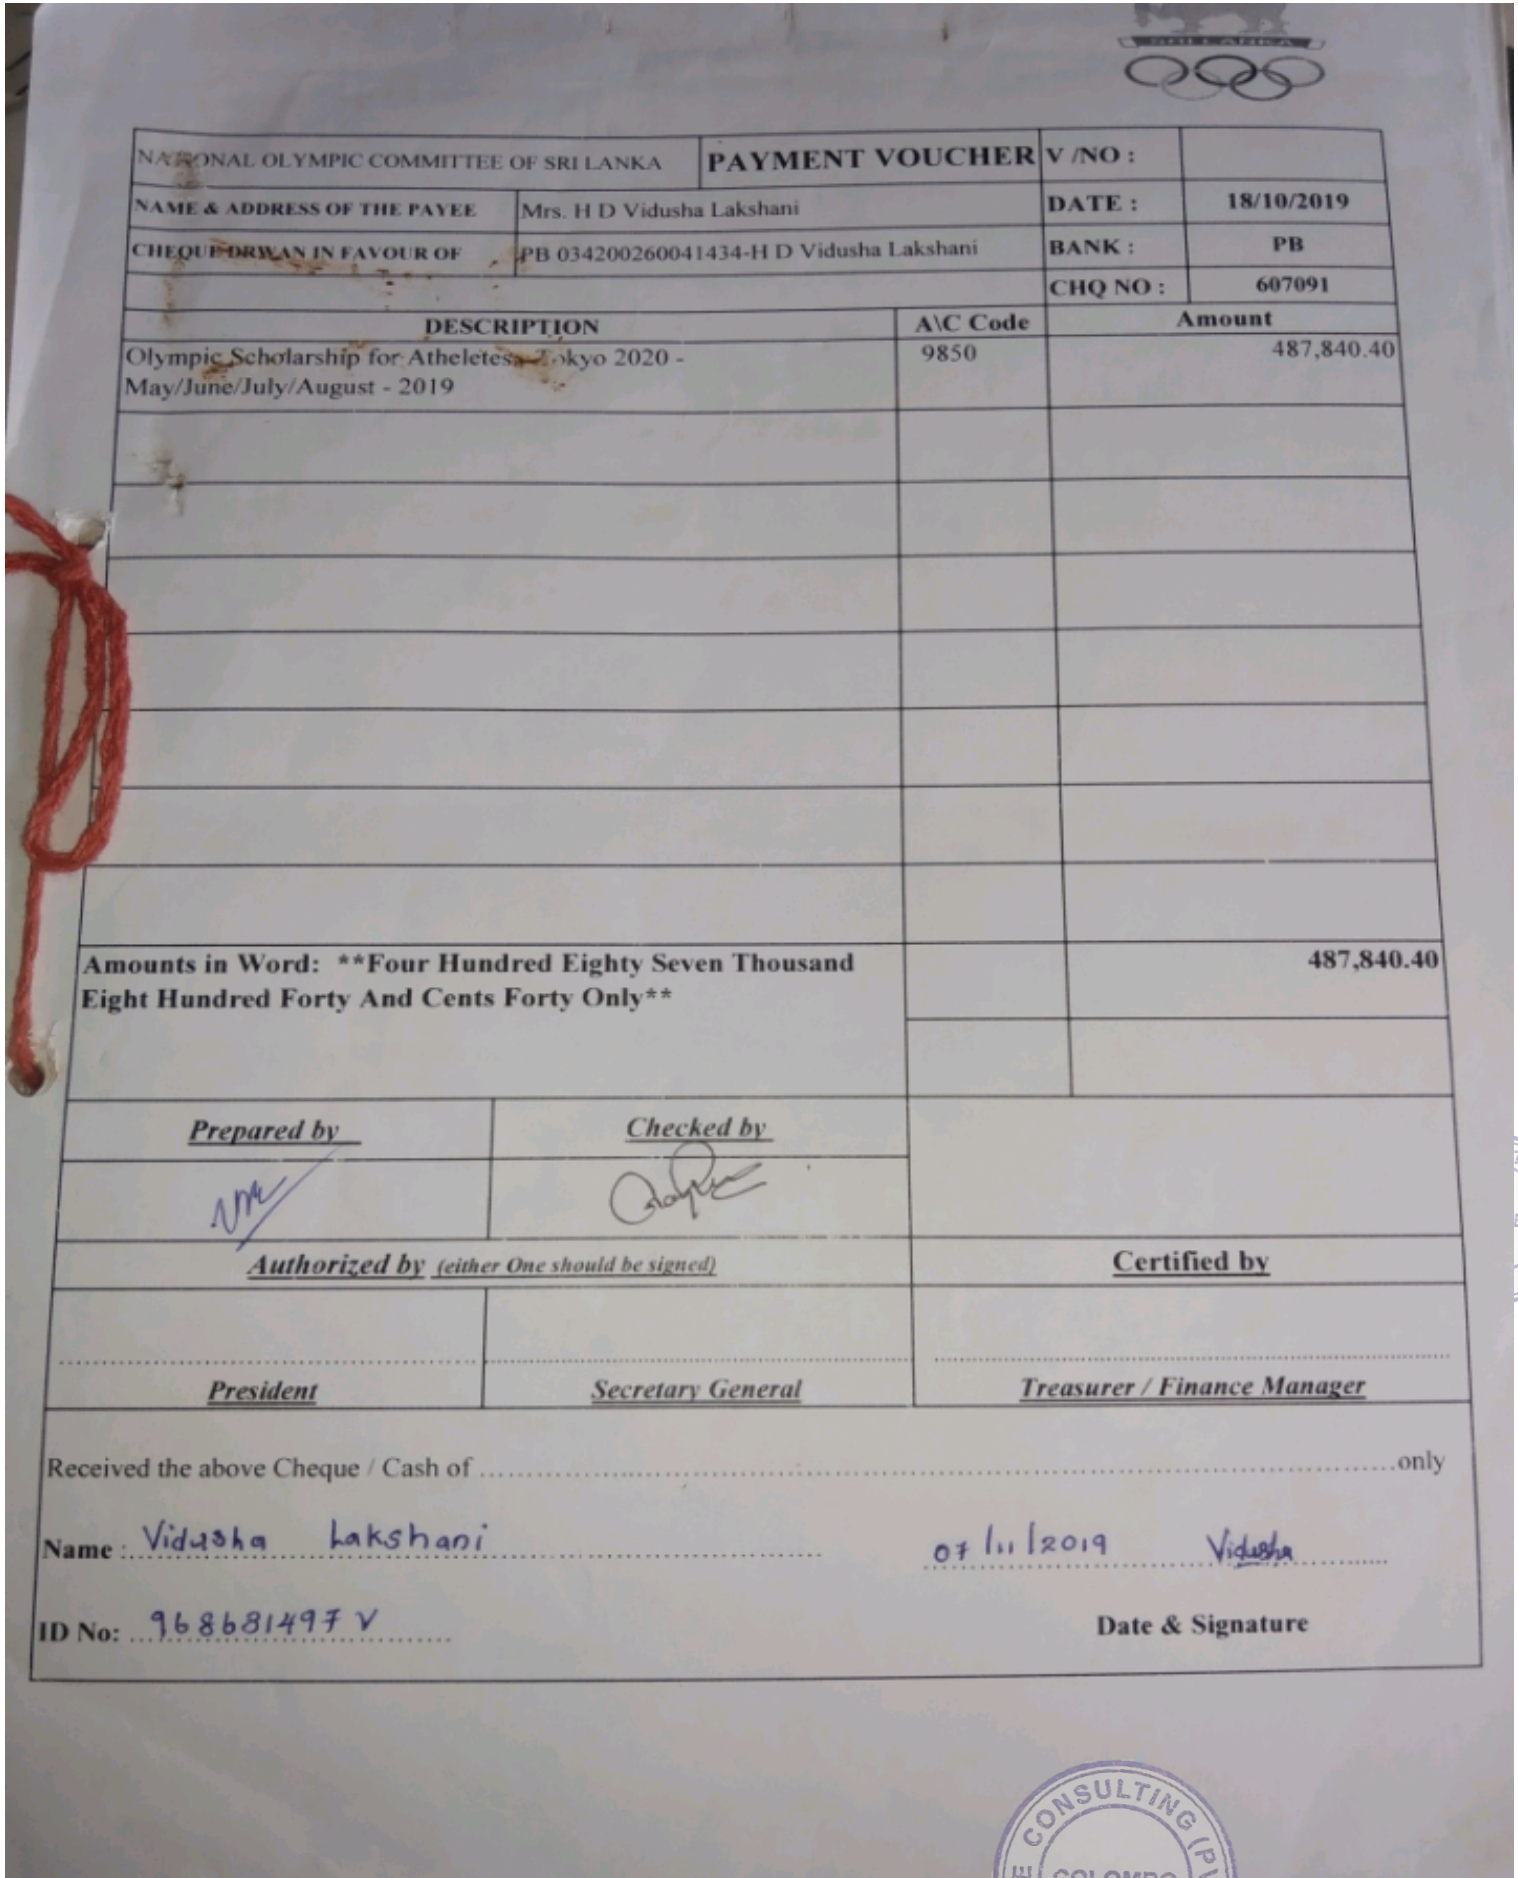 SRI LANKA
NATIONAL OLYMPIC COMMITTEE OF SRI LANKA PAYMENT VOUCHER V /NO :
NAME & ADDRESS OF THE PAYEE Mrs. H D Vidusha Lakshani DATE : 18/10/2019
CHEQUE DRWAN IN FAVOUR OF PB 034200260041434-H D Vidusha Lakshani BANK : PB
CHQ NO : 607091
DESCRIPTION A\C Code Amount
Olympic Scholarship for Atheletes- Tokyo 2020 - 9850 487,840.40
May/June/July/August - 2019
Amounts in Word: **Four Hundred Eighty Seven Thousand 487,840.40
Eight Hundred Forty And Cents Forty Only**
Prepared by Checked by
Authorized by (either One should be signed) Certified by
President Secretary General Treasurer / Finance Manager
Received the above Cheque / Cash of only
Name : Vidusha Lakshani 07/11/2019 Vidusha
ID No: 968681497 V Date & Signature
CONSULTING
COLOMBO